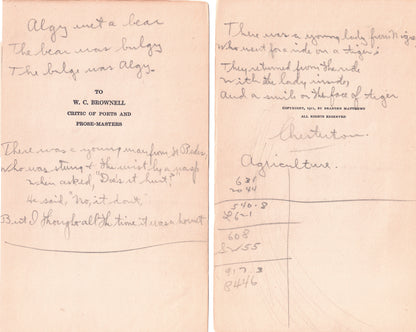 Algy met a bear
The bear was bulgy
The bulge was Algy.
TO
W. C. BROWNELL
CRITIC OF POETS AND
PROSE-MASTERS
There was a young man from St Bedes,
who was stung on the wrist by a wasp
when asked, "Does it hurt?"
He said, "No, it don't,"
But I thought all the time it was a hornet
There was a young lady from Niger
who went for a ride on a tiger;
They returned from the ride
with the lady inside,
And a smile on the face of tiger
COPYRIGHT, 1911, BY BRANDER MATTHEWS
ALL RIGHTS RESERVED
Chesterton.
Agriculture.
2044
540.8
608
917.3
8446